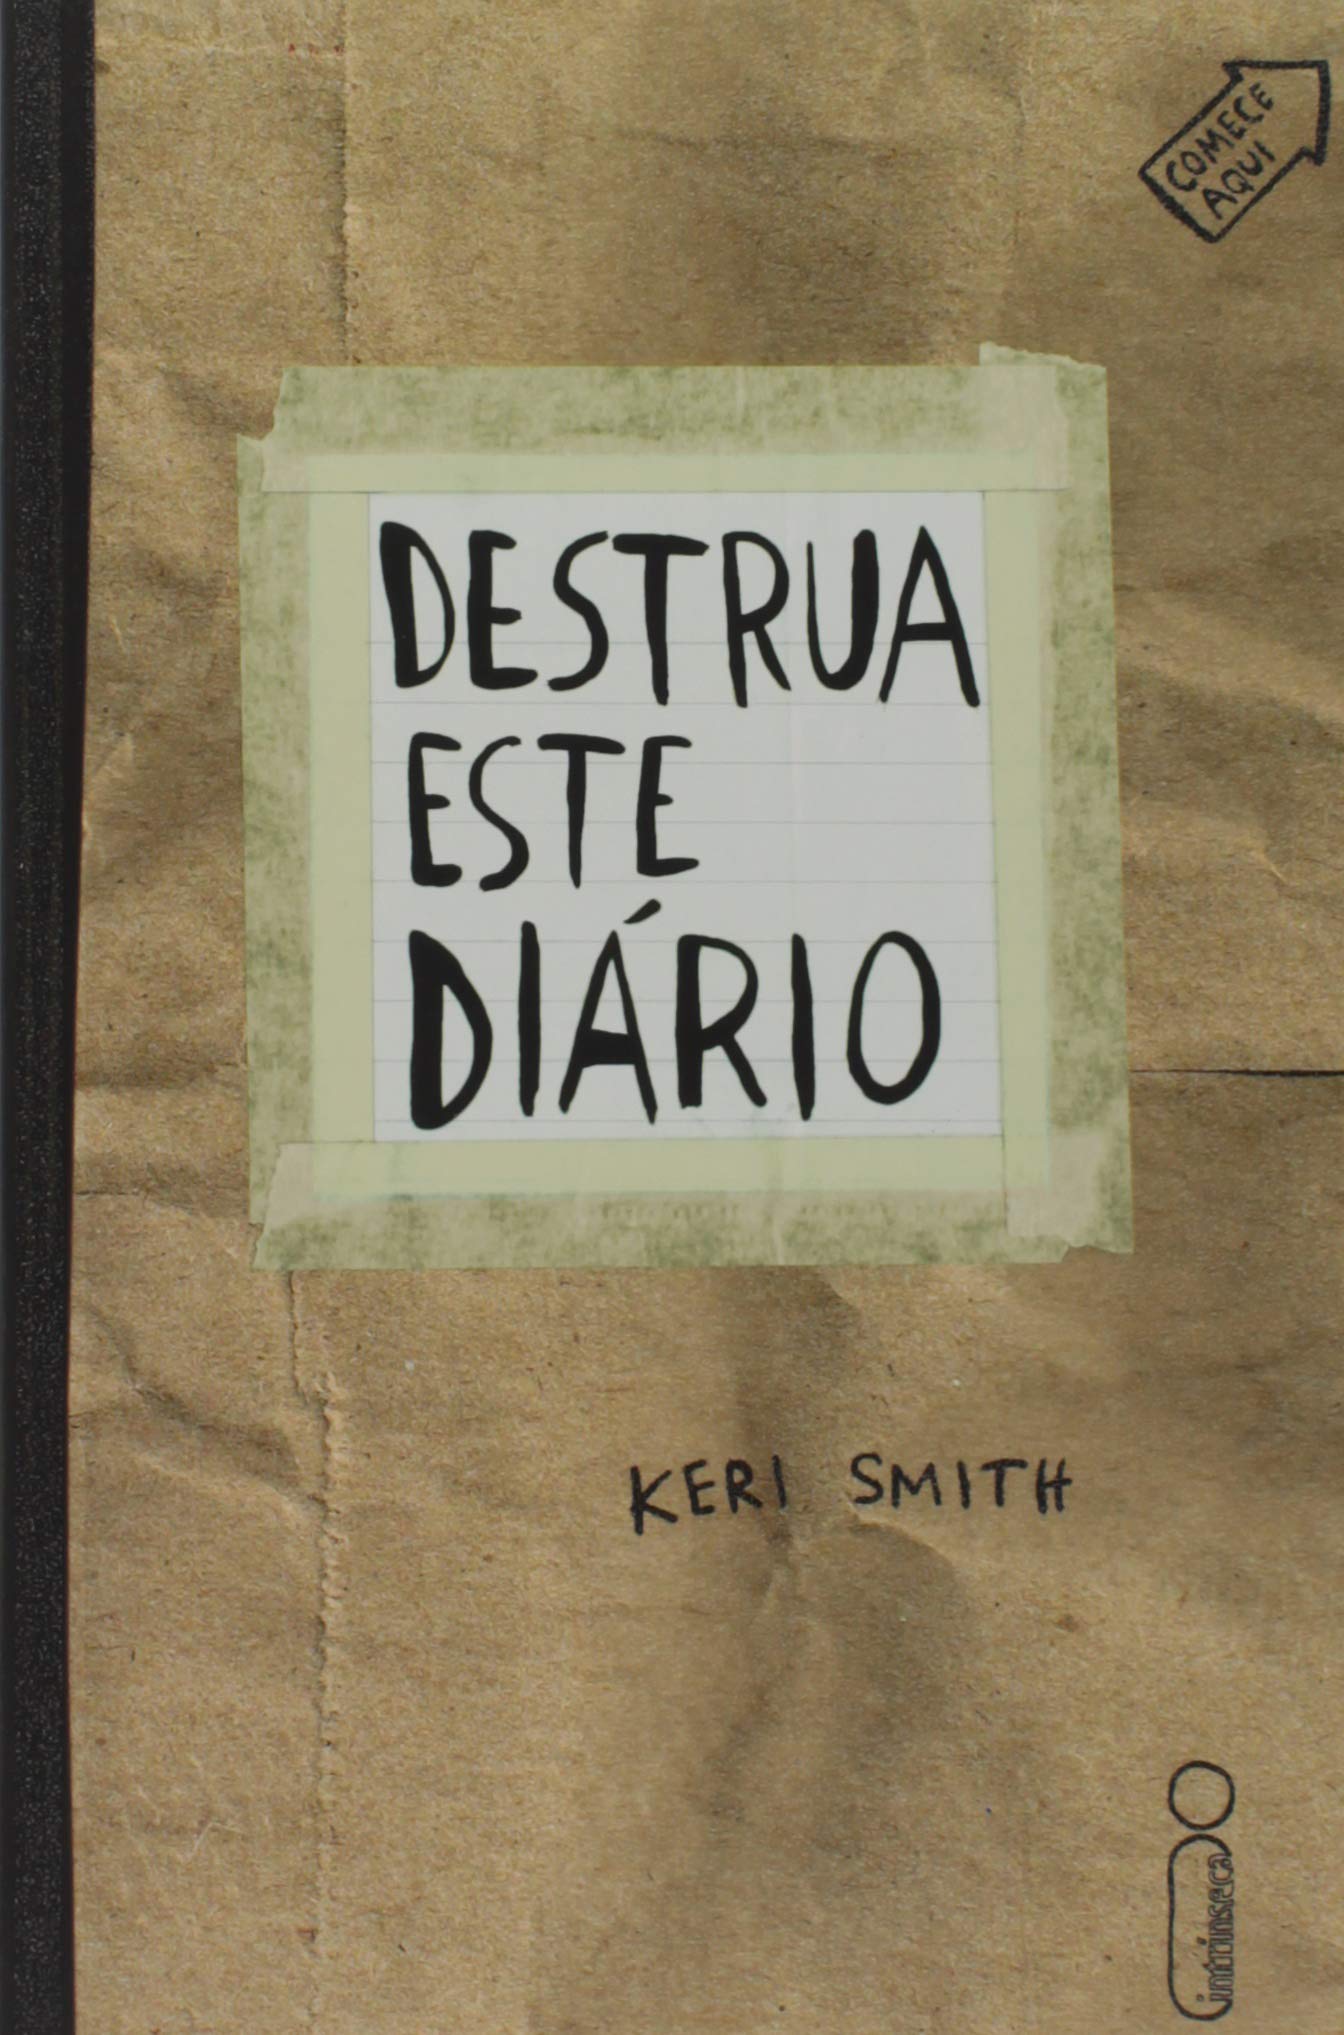 COMECE
AQUI
DESTRUA
ESTE
DIÁRIO
KERI SMITH
intrínseca